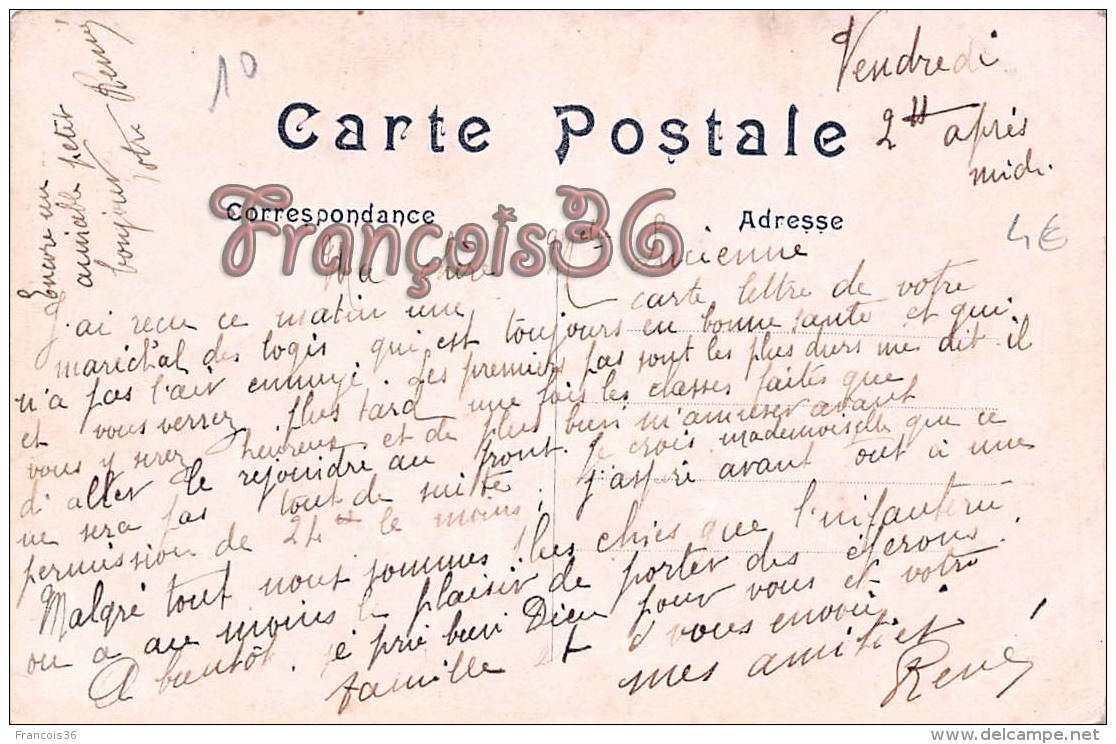 10
Vendredi
2 H après
midi.
Carte Postale
Correspondance
Adresse
François36
4€
Encore un
amicable petit
bonjour
votre René
Ma chère Mlle Lucienne
J'ai reçu ce matin une carte lettre de votre
marechal des logis qui est toujours en bonne santé et qui
n'a pas l'air ennuyé. Les premiers pas sont les plus durs me dit il
et vous verrez plus tard une fois les classes faites que
vous y serez heureux et de plus bien m'amuser avant
d'aller le rejoindre au front. Je crois mademoiselle que ce
ne sera pas tout de suite, j'aspire avant tout à une
permission de 24 H le moins.
Malgré tout nous sommes plus chics que l'infanterie
on a au moins le plaisir de porter des éperons.
A bientôt. je prie bien Dieu pour vous et votre
famille et vous envoie
mes amitiés
René
François36
www.delcampe.net